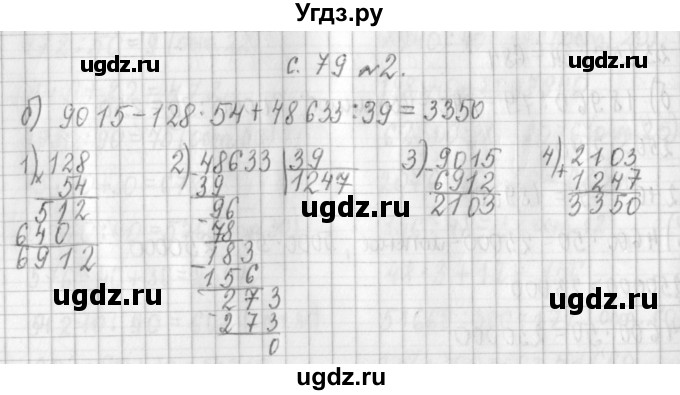 Угдз.ру
с. 79 №2.
б) 9015-128·54+48633:39=3350
1) 128
× 54
512
640
6912
2) 48633 39
- 39 1247
- 96
78
- 183
156
- 273
- 273
0
3) - 9015
6912
2103
4) + 2103
1247
3350
ugdz.ru
ugdz.ru
ugdz.ru
ugdz.ru
ugdz.ru
ugdz.ru
ugdz.ru